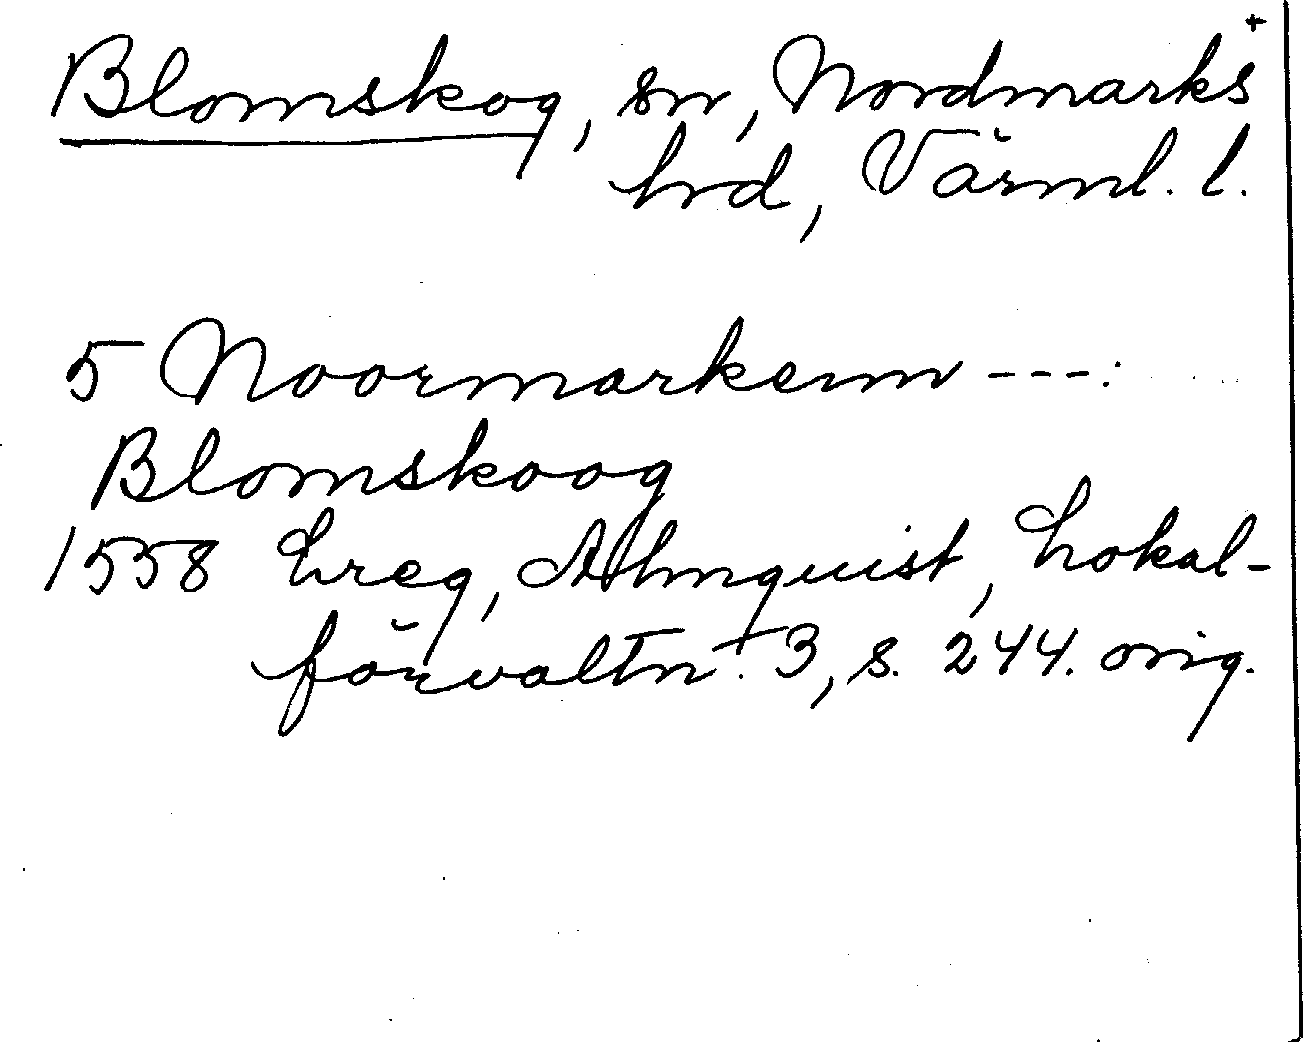 +
Blomskog, sn, Nordmarks
hd, Värml. l.
5 Noormarkenn ---:
Blomskoog
1558 Lreg, Almquist, Lokal-
förvaltn. 3, s. 244. orig.